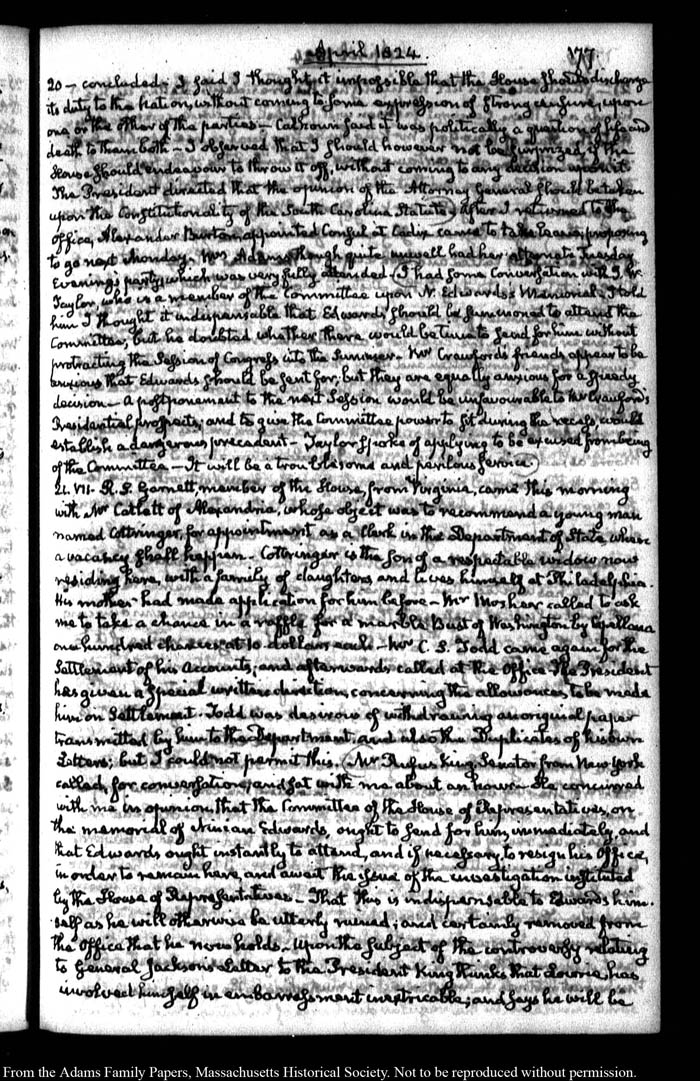 April 1824. 77.
20 — concluded. I said I thought it impossible that the House should discharge
its duty to the Nation, without coming to some expression of strong censure, upon
one or the other of the parties — Calhoun said it was politically a question of life and
death to them both — I observed that I should however not be surprized, if the
House should endeavour to throw it off, without coming to any decision upon it
The President directed that the opinion of the Attorney General should be taken
upon the Constitutionality of the South Carolina Statute. After I returned to the
Office, Alexander Burton, appointed Consul at Cadiz came to take leave; proposing
to go next Monday. Mrs Adams though quite unwell had her alternate Tuesday
Evening's party, which was very fully attended. I had some Conversation with J. W.
Taylor, who is a member of the Committee upon N. Edwards's Memorial. I told
him I thought it indispensable that Edwards should be summoned to attend the
Committee, but he doubted whether there would be time to send for him without
protracting the Session of Congress into the Summer. Mr Crawford's friends appear to be
anxious that Edwards should be sent for, but they are equally anxious for a speedy
decision — A postponement to the next Session would be unfavourable to Mr Crawford's
Presidential prospects; and to give the Committee power to sit during the recess, would
establish a dangerous precedent — Taylor spoke of applying to be excused from being
of the Committee — It will be a troublesome and perilous service.
21. VII. R. S. Garnett, member of the House, from Virginia, came this morning
with Mr Catlett of Alexandria, whose object was to recommend a young man
named Cottringer, for appointment as a Clerk in the Department of State when
a vacancy shall happen. Cottringer is the son of a respectable widow now
residing here, with a family of daughters, and lives himself at Philadelphia.
His mother had made application for him before — Mr Mosher called to ask
me to take a chance in a raffle for a marble Bust of Washington by Capellano
one hundred chances, at 10 dollars each — Mr C. S. Todd came again for the
Settlement of his Accounts; and afterwards called at the Office. The President
has given a special written direction, concerning the allowances to be made
him on Settlement. Todd was desirous of withdrawing an original paper
transmitted by him to the Department, and also the Duplicates of his own
Letters; but I could not permit this. Mr Rufus King, Senator from New York
called, for conversation; and sat with me about an hour. He concurred
with me in opinion, that the Committee of the House of Representatives, on
the memorial of Ninian Edwards, ought to send for him, immediately, and
that Edwards ought instantly to attend, and if necessary, to resign his Office,
in order to remain here, and await the issue of the investigation instituted
by the House of Representatives — That this is indispensable to Edwards him-
self as he will otherwise be utterly ruined; and certainly removed from
the Office that he now holds. Upon the subject of the controversy relating
to General Jackson's Letter to the President King thinks that Lowrie, has
involved himself in embarrassment inextricable; and says he will be
From the Adams Family Papers, Massachusetts Historical Society. Not to be reproduced without permission.